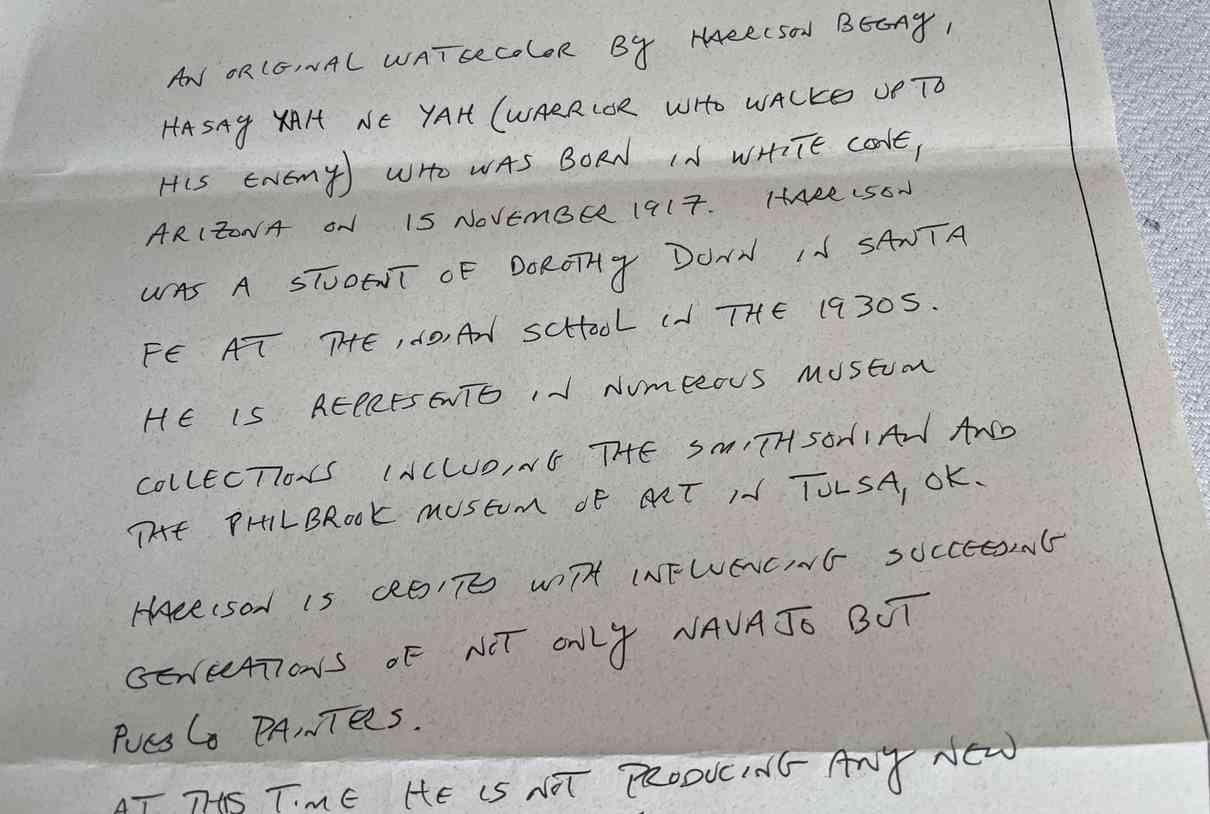 AN ORIGINAL WATERCOLOR BY HARRISON BEGAY,
HASAY YAH NE YAH (WARRIOR WHO WALKED UP TO
HIS ENEMY) WHO WAS BORN IN WHITE CONE,
ARIZONA ON 15 NOVEMBER 1917. HARRISON
WAS A STUDENT OF DOROTHY DUNN IN SANTA
FE AT THE INDIAN SCHOOL IN THE 1930S.
HE IS REPRESENTED IN NUMEROUS MUSEUM
COLLECTIONS INCLUDING THE SMITHSONIAN AND
THE PHILBROOK MUSEUM OF ART IN TULSA, OK.
HARRISON IS CREDITED WITH INFLUENCING SUCCEEDING
GENERATIONS OF NOT ONLY NAVAJO BUT
PUEBLO PAINTERS.
AT THIS TIME HE IS NOT PRODUCING ANY NEW